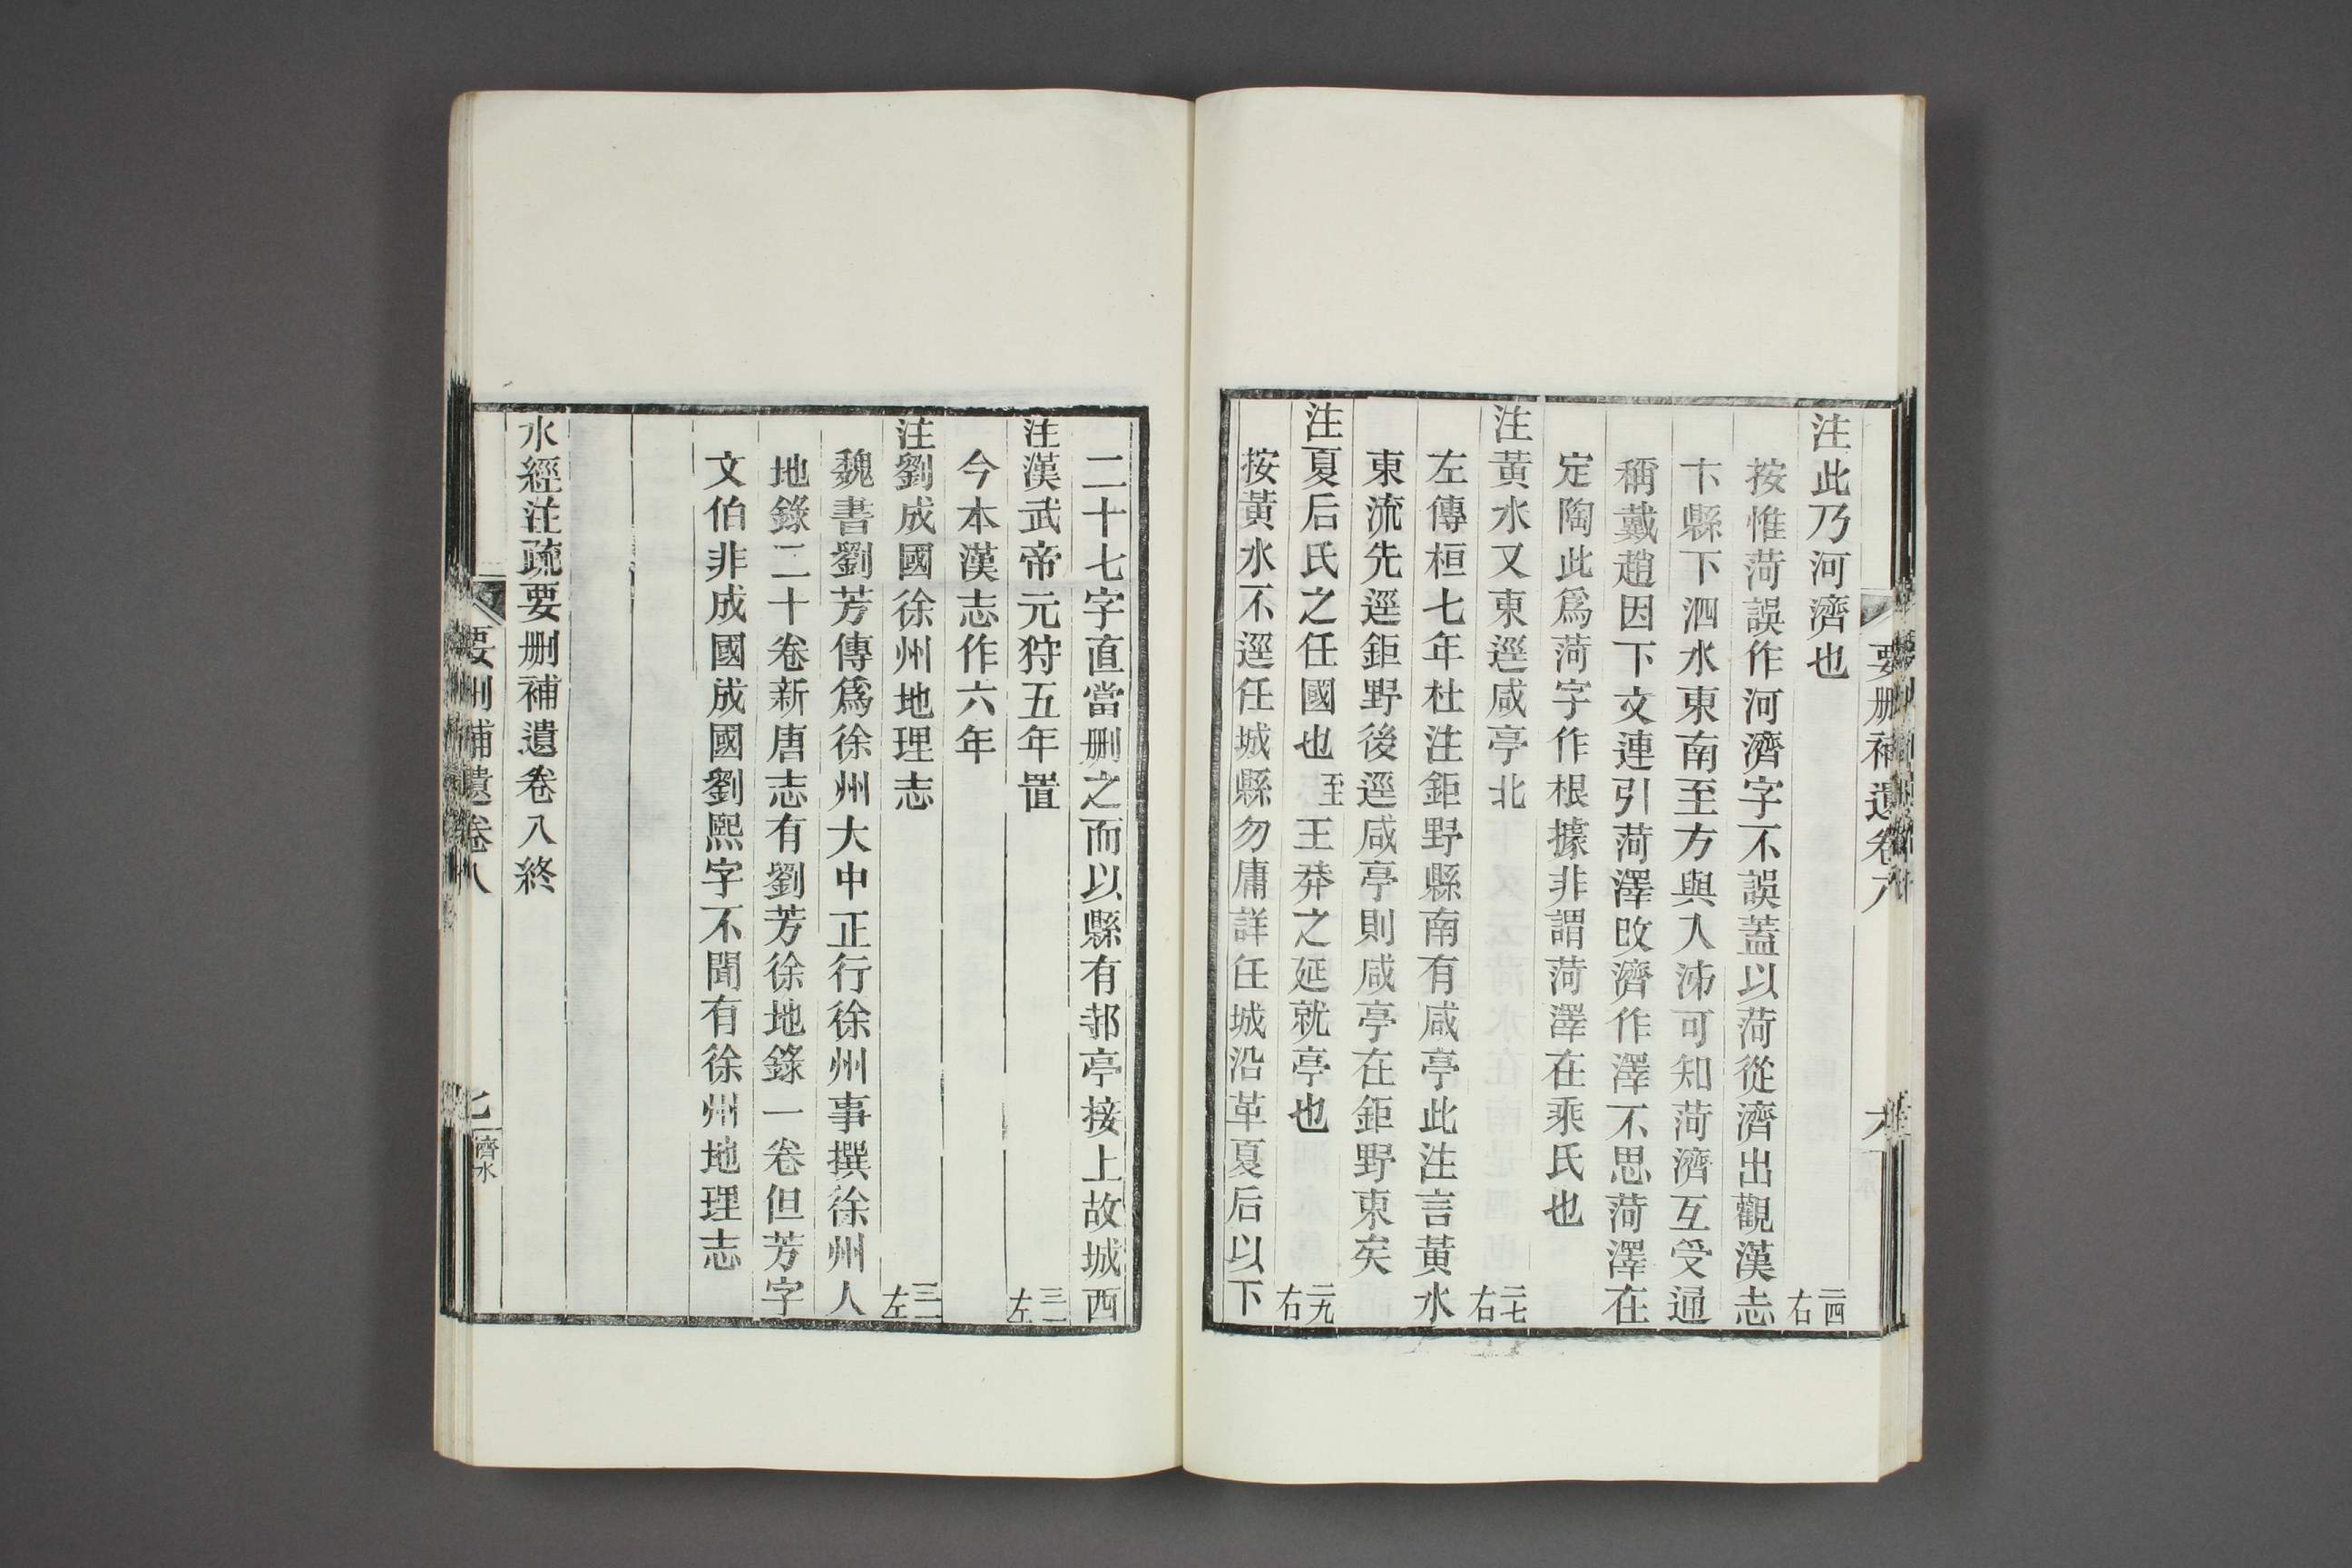 要删補遺卷八
六
注此乃河濟也 二四右
按惟菏誤作河濟字不誤蓋以菏從濟出觀漢志
卞縣下泗水東南至方與入沛可知菏濟互受通
稱戴趙因下文連引菏澤改濟作澤不思菏澤在
定陶此爲菏字作根據非謂菏澤在乘氏也
注黃水又東逕咸亭北 二七右
左傳桓七年杜注鉅野縣南有咸亭此注言黃水
東流先逕鉅野後逕咸亭則咸亭在鉅野東矣
注夏后氏之任國也至王莽之延就亭也 二九右
按黃水不逕任城縣勿庸詳任城沿革夏后以下
二十七字直當删之而以縣有邿亭接上故城西
注漢武帝元狩五年置 三一左
今本漢志作六年
注劉成國徐州地理志 三二左
魏書劉芳傳爲徐州大中正行徐州事撰徐州人
地錄二十卷新唐志有劉芳徐地錄一卷但芳字
文伯非成國成國劉熙字不聞有徐州地理志
水經注疏要删補遺卷八終
要删補遺卷八
七
濟水